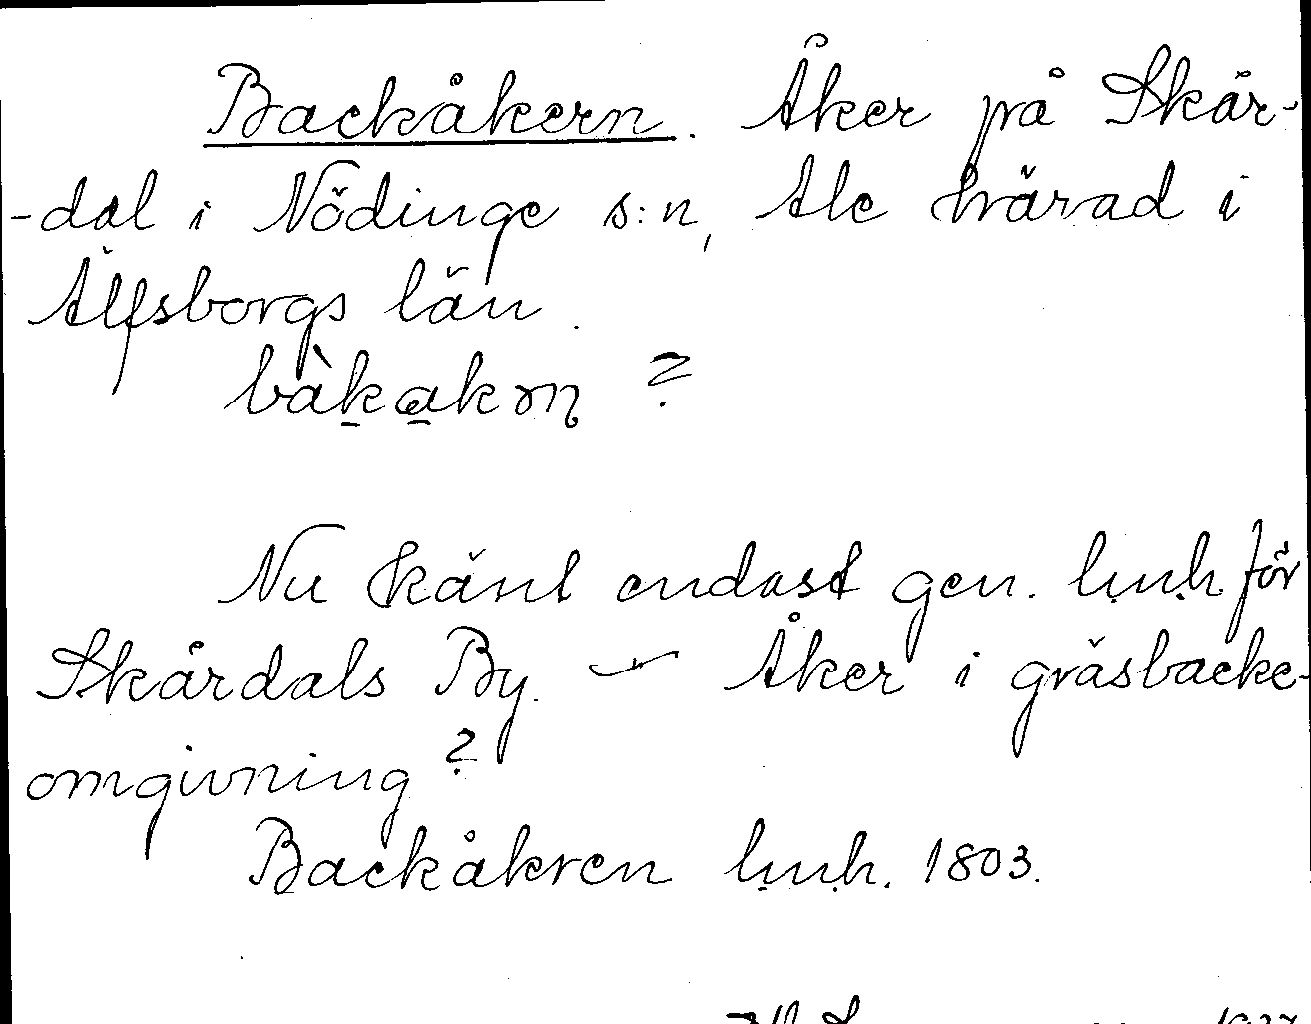 Backåkern. Åker på Skår-
-dal i Nödinge s:n, Ale härad i
Älfsborgs län.
bàkakɷn ?
Nu känt endast gen. l.m.h. för
Skårdals By. – Åker i gräsbacke-
omgivning ?
Backåkren l.m.h. 1803.